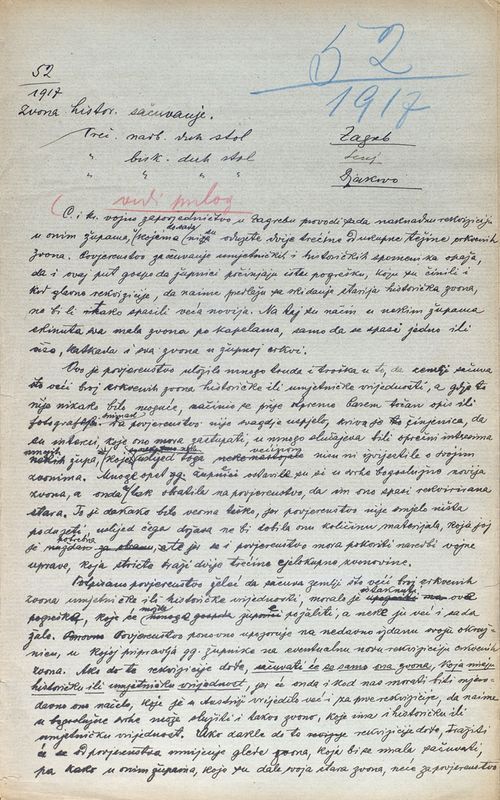 52
1917
52
1917
Zvona histor. sačuvanje.
Preč. nadb. duh stol
Zagreb
" bisk. duh. stol
Senj
" " " "
Djakovo
vidi prilog
C. i kr. vojno zapovjedničtvo u Zagrebu provodi sada naknadnu rekviziciju
u onim župama, kojima nisu odujete dvije trećine ukupne težine crkvenih
zvona. Povjerenstvo za čuvanje umjetničkih i historičkih spomenika opaža,
da i ovaj put gospoda župnici počinjaju istu pogrješku, koju su činili i
kod glavne rekvizicije, da naime predlažu za skidanje starija historička zvona,
ne bi li tako spasili veća novija. Na taj su način u nekim župama
skinuta sva mala zvona po kapelama, samo da se spasi jedno ili
više, katkada i sva zvona u župnoj crkvi.
Ovo je povjerenstvo uložilo mnogo truda i troška u to, da zemlji sačuva
što veći broj crkvenih zvona historičke ili umjetničke vrijednosti, a gdje to
nije nikako bilo moguće, načinio se prije otpreme barem točan opis ili
snimak. Povjerenstvo nije svagdje uspjelo, kriva je ta činjenica, da
su interesi, koje ono mora zastupati, u mnogo slučajeva bili oprečni interesima
župa,
zvonima. Mnoga opet gg. župnici ostavila su si u svrhe bogoslužne novija
zvona, a onda tek obratila na povjerenstvo, da im ono spasi rekvirirana
stara. To je dakako bilo veoma teško, jer povjerenstvo nije smjelo ništa
poduzeti, uslijed čega država ne bi dobila onu količinu materijala, koja joj
je potrebna, te se i povjerenstvo mora pokoriti naredbi vojne
uprave, koja stricto traži dvije trećine cjelokupne zvonovine.
Potpisano povjerenstvo želeć da sačuva zemlji što veći broj crkvenih
zvona umjetničke ili historičke vrijednosti, moralo je istaknuti ova
pogreška, koje će moći župnici požaliti, a neki ju već i sada
žale. Povjerenstvo ponovno upozoruje na nedavno izdanu svoju okruž-
nicu, u kojoj pripravlja gg. župnike na eventualnu novu rekviziciju crkvenih
zvona. Ako do te rekvizicije dodje, sačuvati će se samo ona zvona, koja imaju
historičku ili umjetničku vrijednost, jer će onda i kod nas morati biti mjero-
davno ono načelo, koje je u Austriji vrijedilo već i za prve rekvizicije, da naime
u bogoslužne svrhe može služiti i takvo zvono, koje ima i historičku ili
umjetničku vrijednost. Ako dakle do te rekvizicije dodje, tražiti
će se povjerenstva mnijenje glede zvona, koja bi se mala sačuvati,
pa kako u onim župama, koje su dale svoja stara zvona, neće za povjerenstvo